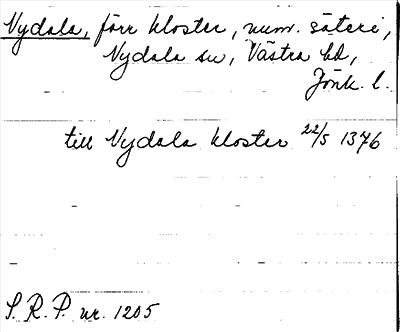 Nydala, förr kloster, num. säteri,
Nydala sn, Västra hd,
Jönk. l.
till Nydala kloster 22/5 1376
S. R. P. nr. 1205